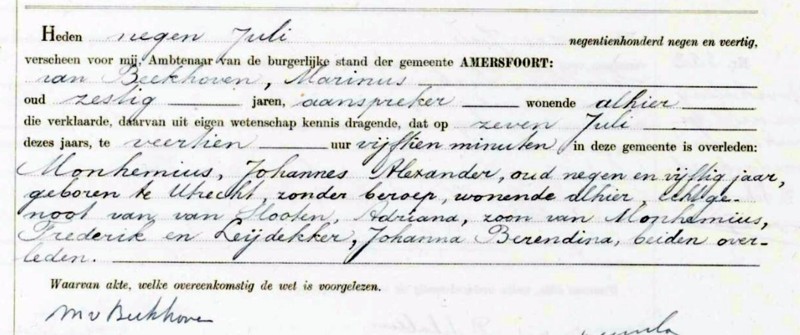 Heden negen Juli negentienhonderd negen en veertig,
verscheen voor mij, Ambtenaar van de burgerlijke stand der gemeente AMERSFOORT:
van Beekhoven, Marinus
oud zestig jaren, aanspreker wonende alhier
die verklaarde, daarvan uit eigen wetenschap kennis dragende, dat op zeven Juli
dezes jaars, te veertien uur vijftien minuten in deze gemeente is overleden:
Monhemius, Johannes Alexander, oud negen en vijftig jaar,
geboren te Utrecht, zonder beroep, wonende alhier, echtge-
noot van van Slooten, Adriana, zoon van Monhemius,
Frederik en Leijdekker, Johanna Berendina, beiden over-
leden.
Waarvan akte, welke overeenkomstig de wet is voorgelezen.
M v Beekhoven